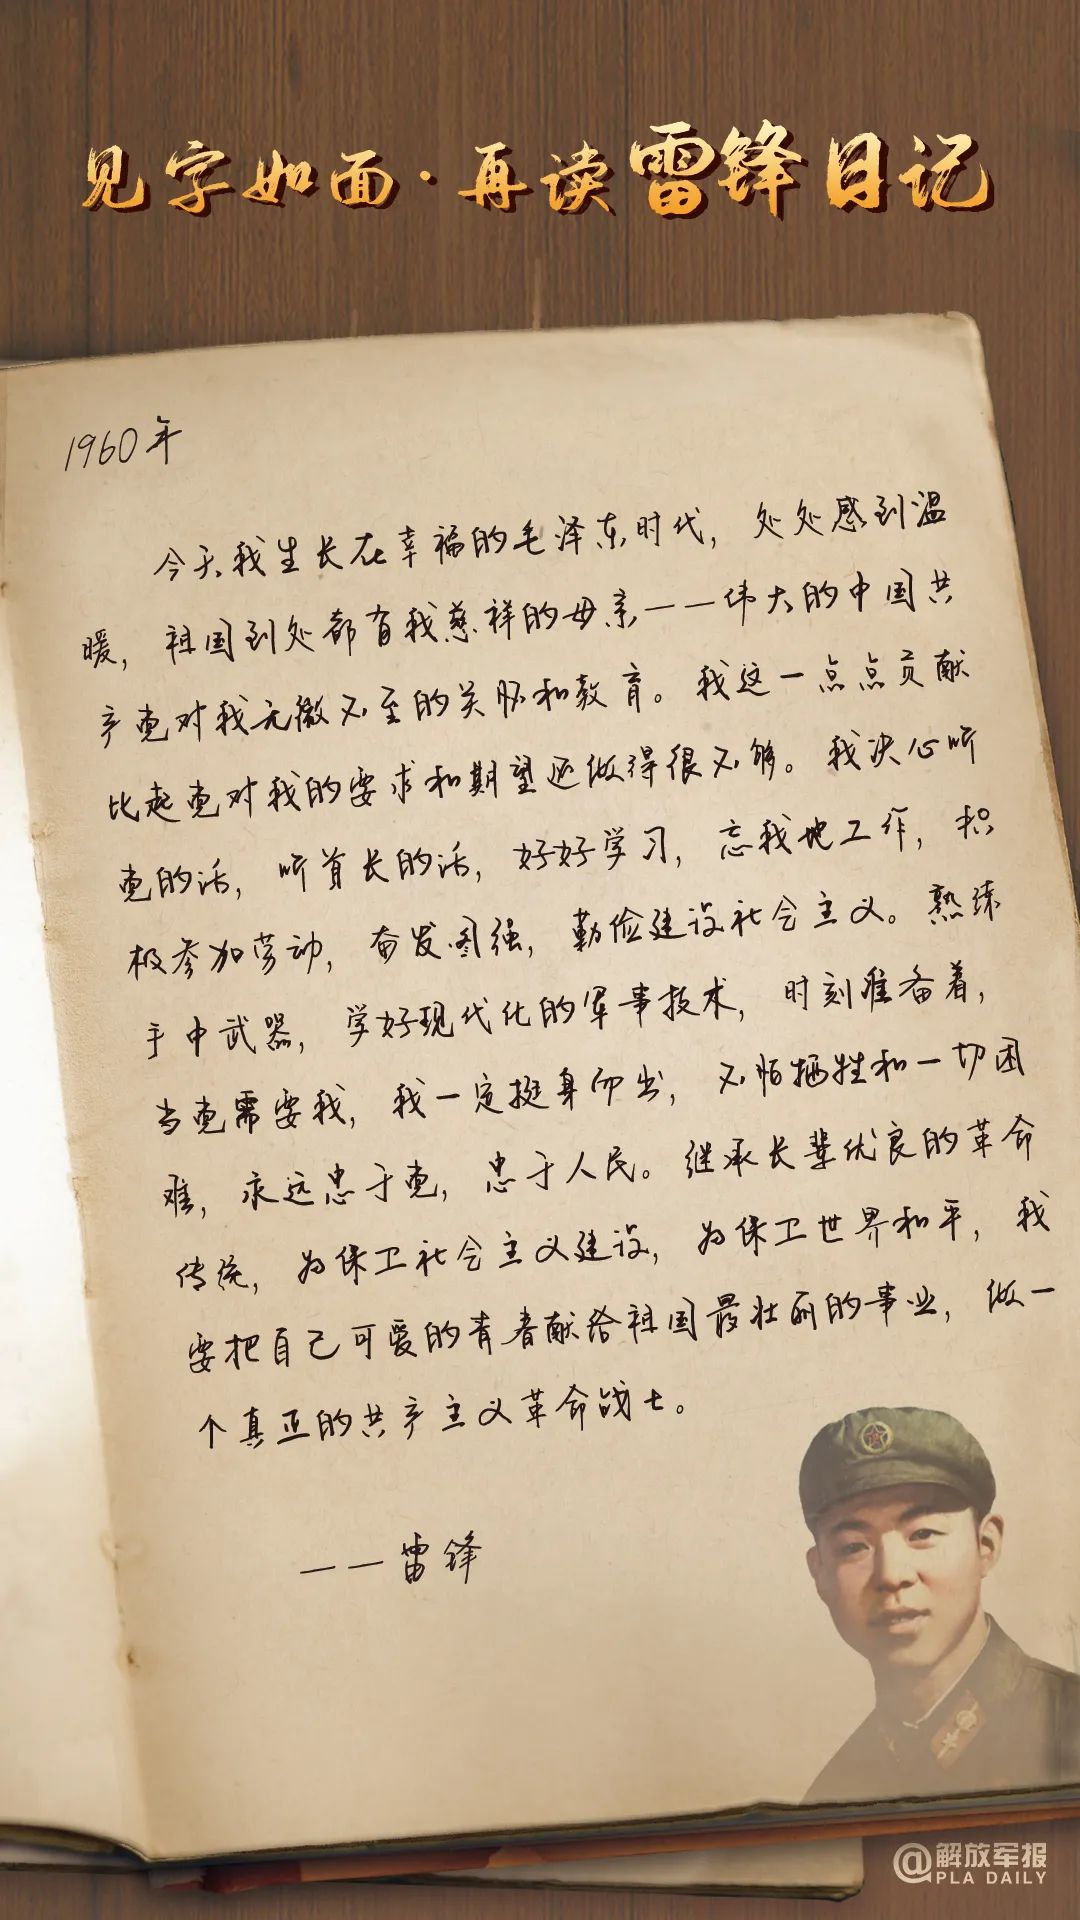 见字如面·再读雷锋日记
1960年
今天我生长在幸福的毛泽东时代，处处感到温
暖，祖国到处都有我慈祥的母亲——伟大的中国共
产党对我无微不至的关怀和教育。我这一点点贡献
比起党对我的要求和期望还做得很不够。我决心听
党的话，听首长的话，好好学习，忘我地工作，积
极参加劳动，奋发图强，勤俭建设社会主义。熟练
手中武器，学好现代化的军事技术，时刻准备着，
当党需要我，我一定挺身而出，不怕牺牲和一切困
难，永远忠于党，忠于人民。继承长辈优良的革命
传统，为保卫社会主义建设，为保卫世界和平，我
要把自己可爱的青春献给祖国最壮丽的事业，做一
个真正的共产主义革命战士。
——雷锋
@解放军报
PLA DAILY